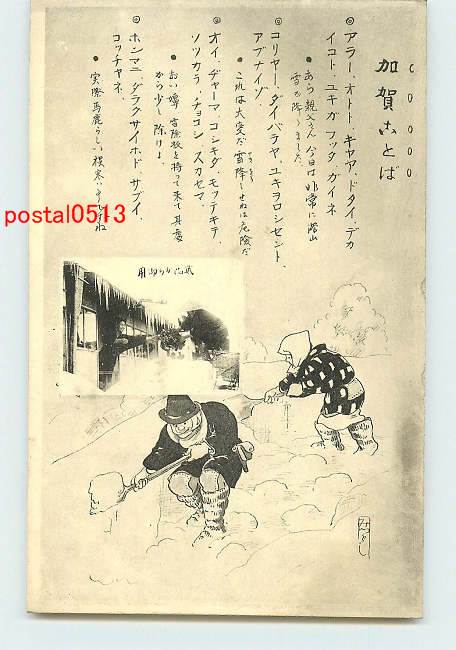 加賀ことば
◎ アラー、オトト、キャア、ドタイ、デカ
イコト、ユキガフッタ、ガイネ
● あら親父さん今日は非常に沢山
雪が降りました。
◎ コリャー、ダイバラヤ、ユキヲロシセント、
アブナイゾ、
● これは大変だ雪降しせねば危険だ
◎ オイ、ヂャーマ、コシキダ、モッテキテ、
ソツカラ、チョコシ スカセマ、
● おい嬶 雪除板を持って来て其処
から少し除けよ、
◎ ホンマニ、ダラクサイホド、サブイ、
コッチャネ、
● 実際馬鹿らしい様寒い
postal0513